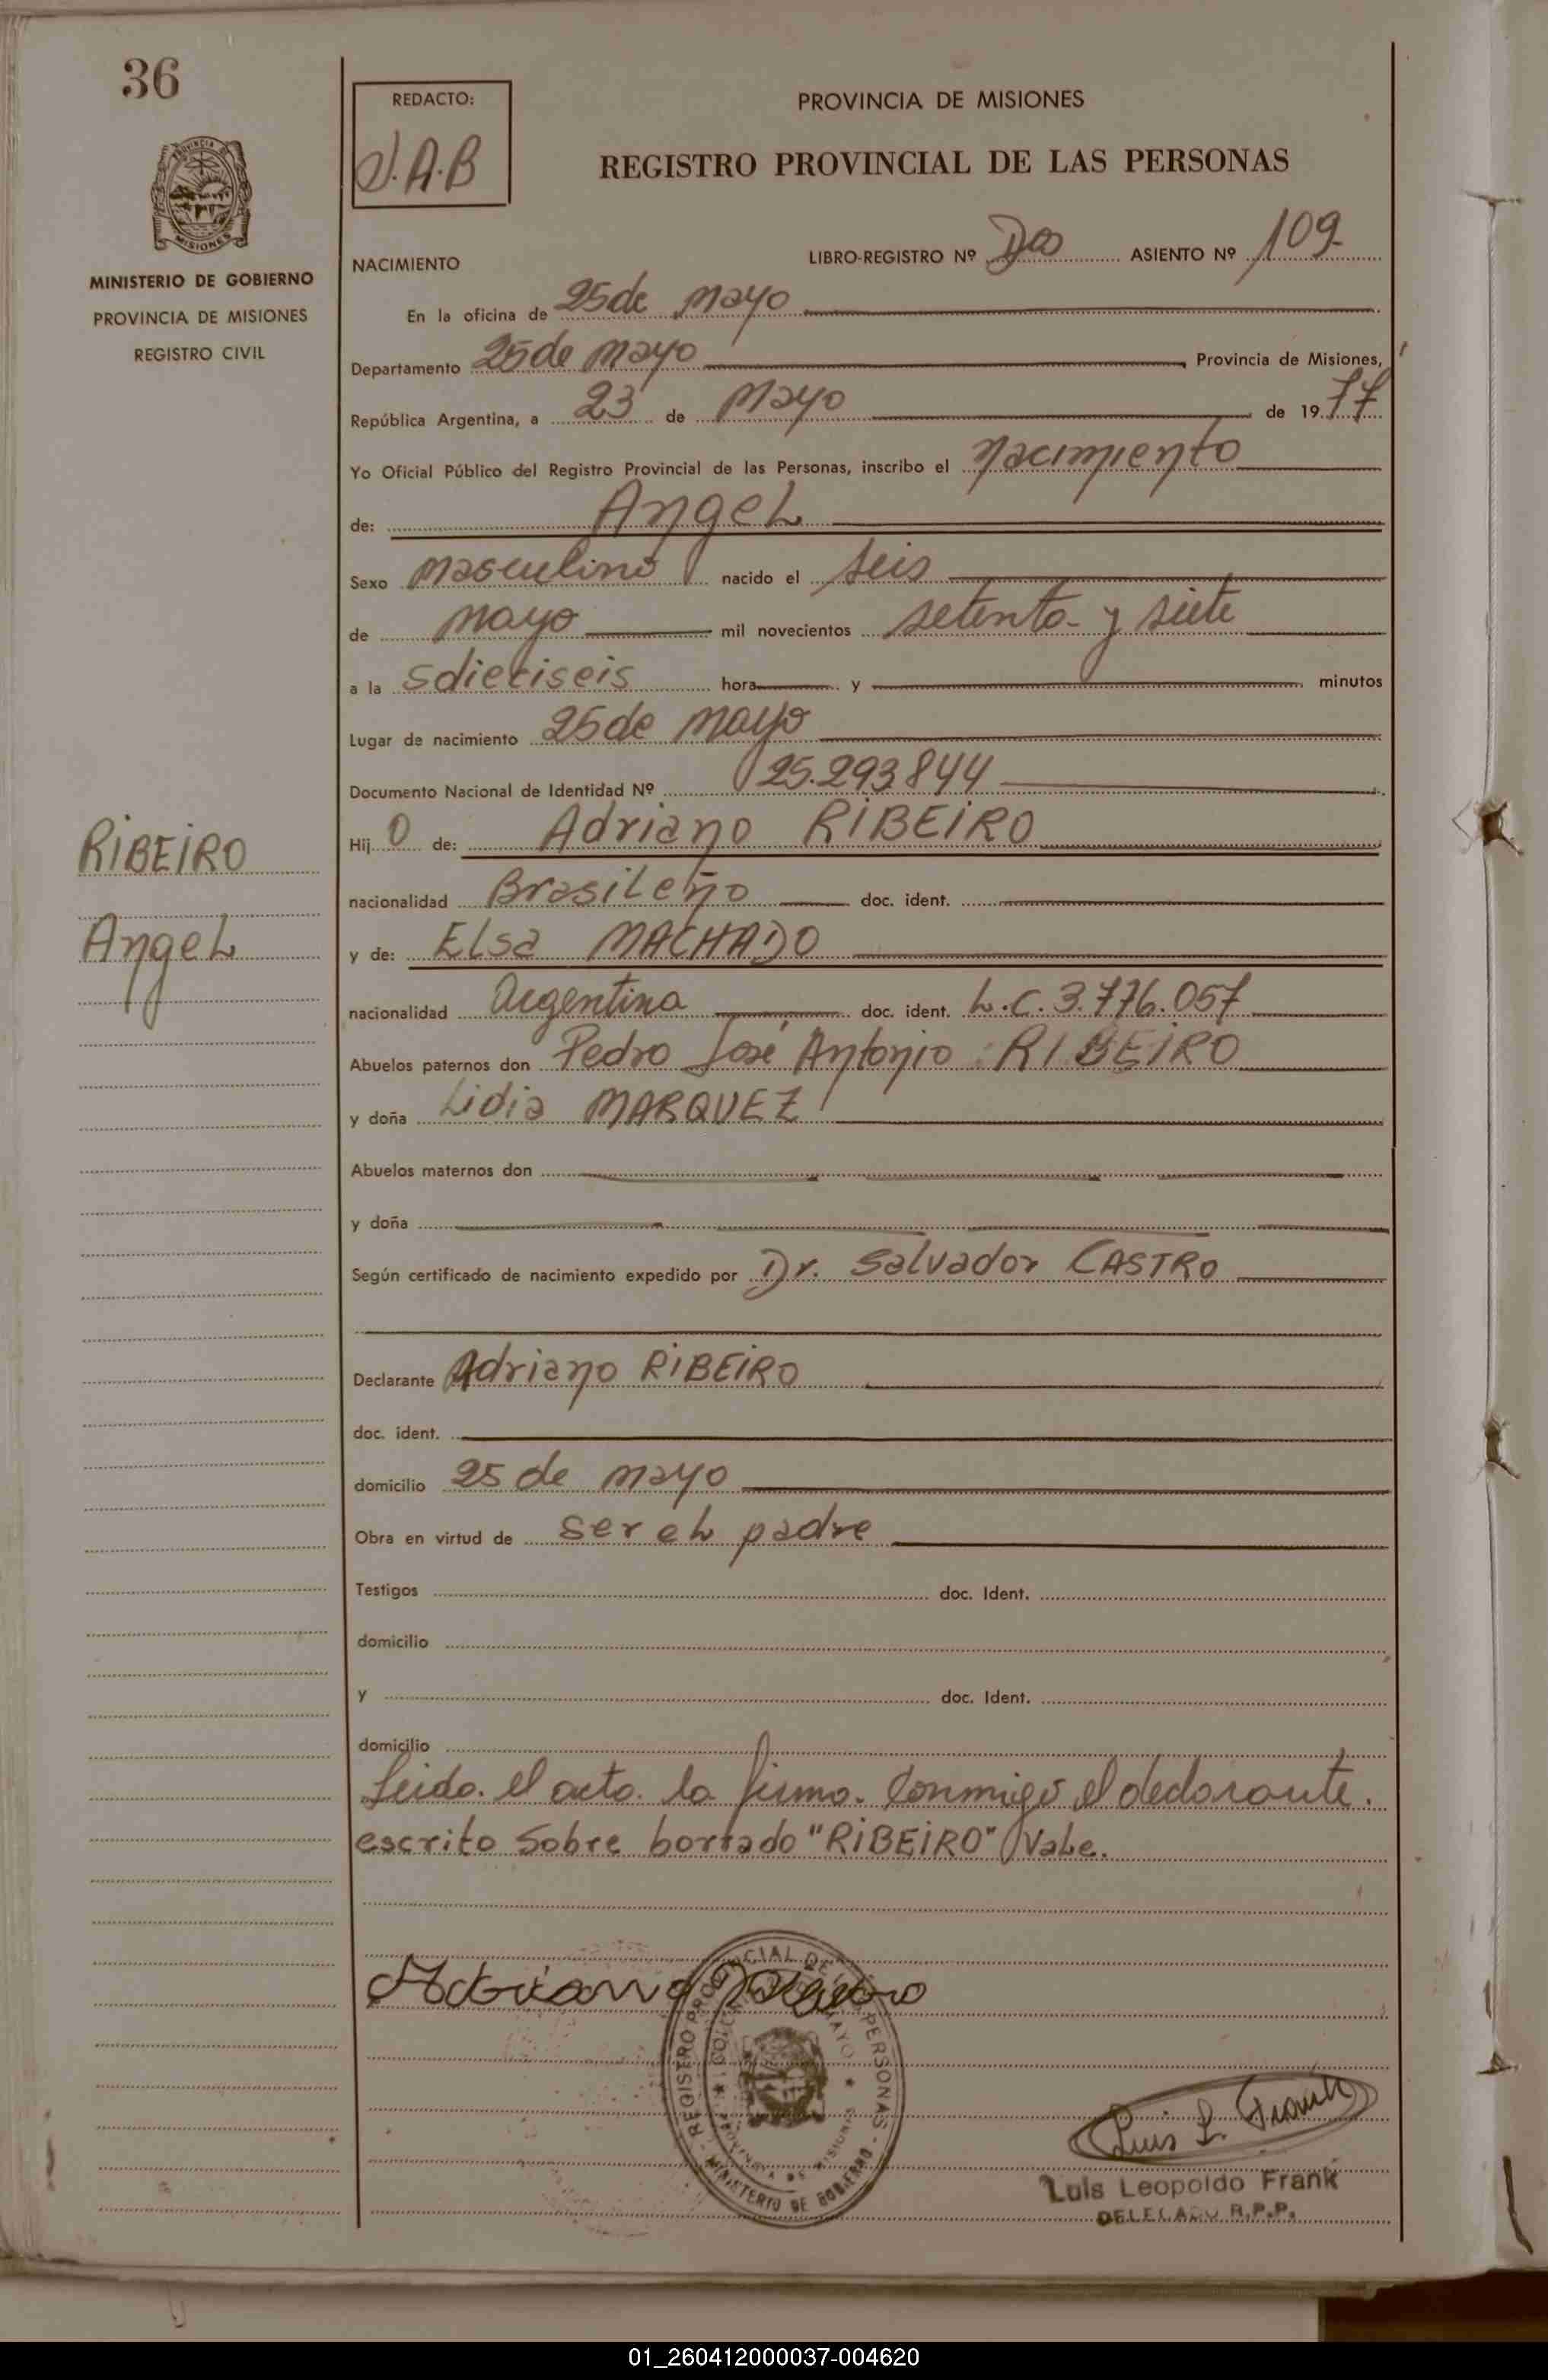 36
REDACTO:
J.A.B
PROVINCIA DE MISIONES
REGISTRO PROVINCIAL DE LAS PERSONAS
MISIONES
MINISTERIO DE GOBIERNO
PROVINCIA DE MISIONES
REGISTRO CIVIL
NACIMIENTO
LIBRO-REGISTRO Nº Dos ASIENTO Nº 109-
En la oficina de 25 de mayo
Departamento 25 de mayo Provincia de Misiones,
República Argentina, a 23 de mayo de 1977
Yo Oficial Público del Registro Provincial de las Personas, inscribo el nacimiento
de: AngeL
Sexo masculino nacido el seis
de mayo mil novecientos setenta y siete
a la s dieciseis hora y minutos
Lugar de nacimiento 25 de mayo
Documento Nacional de Identidad Nº 25.293.844
Hij o de: Adriano RIBEIRO
RIBEIRO
nacionalidad BrasiLeño doc. ident.
AngeL
y de: ELsa MACHADO
nacionalidad Argentina doc. ident. L.C. 3.776.057
Abuelos paternos don Pedro José Antonio RIBEIRO
y doña Lidia MARQUEZ
Abuelos maternos don
y doña
Según certificado de nacimiento expedido por Dr. Salvador CASTRO
Declarante Adriano RIBEIRO
doc. ident.
domicilio 25 de mayo
Obra en virtud de ser eL padre
Testigos doc. Ident.
domicilio
y doc. Ident.
domicilio
Leida el acta la firma conmigo el declarante.
escrito sobre borrado "RIBEIRO" VaLe.
Adriano Ribeiro
REGISTRO PROVINCIAL DE LAS PERSONAS - MINISTERIO DE GOBIERNO
PROVINCIA DE MISIONES
Luis L. Frank
Luis Leopoldo Frank
DELEGADO R.P.P.
01_260412000037-004620